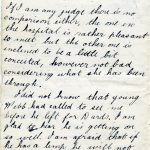 If I am any judge there is no
comparison either, the one in
the hospital is rather pleasant
to meet but the other one is
inclined to be a little bit
conceited, however not bad
considering what she has been
through.
I did not know that young
Webb had called to see me
before he left for
I am
glad to hear he is getting on
so well. I am afraid that if
he has a limp he will not